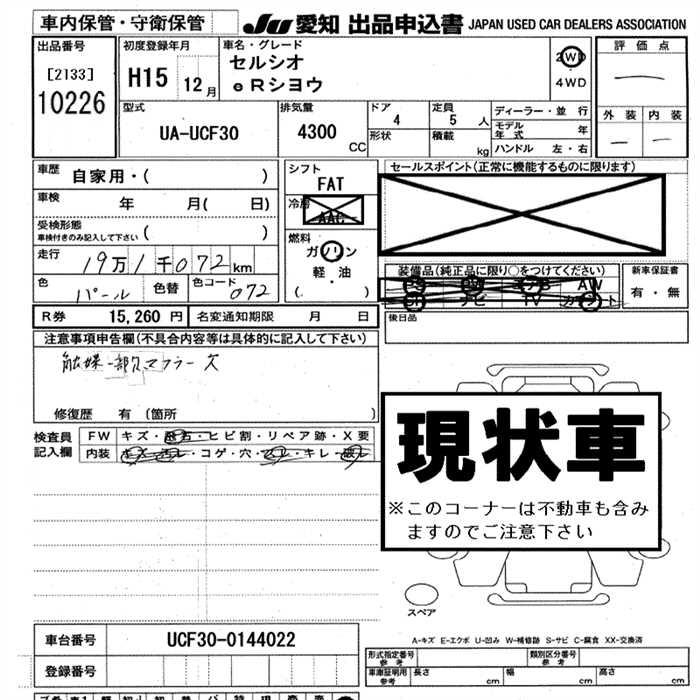 車内保管・守衛保管
JU 愛知 出品申込書 JAPAN USED CAR DEALERS ASSOCIATION
出品番号
[2133]
10226
初度登録年月
H15 12月
車名・グレード
セルシオ
eRシヨウ
2WD
4WD
評価点
外装 内装
型式
UA-UCF30
排気量
4300
CC
ドア
4
形状
定員
5 人
積載
kg
ディーラー・並行
モデル年式 年
ハンドル 左・右
車歴
自家用・( )
車検 年 月( 日)
受検形態
車検付きのみ記入して下さい ( )
走行
19万1千072km
色
パール
色替
色コード
072
シフト
FAT
冷房
AAC
燃料
ガソリン
軽・油
( . )
セールスポイント(正常に機能するものに限ります)
装備品(純正品に限り○をつけてください)
ナビ TV
AW
新車保証書
有・無
後日品
R券 15,260 円 名変通知期限 月 日
注意事項申告欄(不具合内容等は具体的に記入して下さい)
触媒一部欠マフラー欠
修復歴 有 (箇所 )
検査員記入欄
FW キズ・飛石・ヒビ割・リペア跡・X要
内装 コゲ・穴・ キレ・
現状車
※このコーナーは不動車も含み
ますのでご注意下さい
スペア
A-キズ E-エクボ U-凹み W-補修跡 S-サビ C-腐食 XX-交換済
車台番号 UCF30-0144022
登録番号
形式指定番号
参考
類別区分番号
参考
車庫証明用
参考
長さ cm 幅 cm 高さ cm